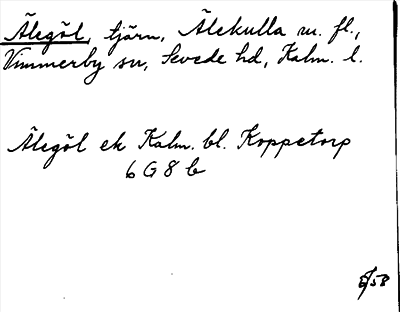 Älegöl, tjärn, Älekulla m. fl.,
Vimmerby sn, Sevede hd, Kalm. l.
Älegöl ek Kalm. bl. Koppetorp
6 G 8 b
/58